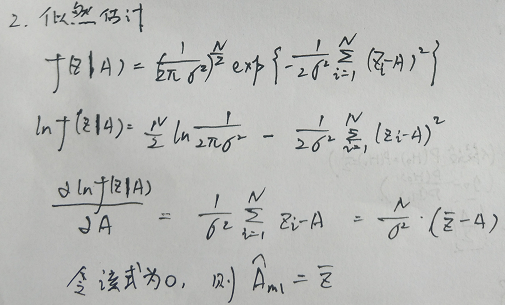 2. 似然估计
f(z|A) = (1/(2πσ²))^(N/2) exp{-1/(2σ²) Σ_{i=1}^{N} (z_i-A)²}
ln f(z|A) = N/2 ln 1/(2πσ²) - 1/(2σ²) Σ_{i=1}^{N} (z_i-A)²
∂ln f(z|A)/∂A = 1/σ² Σ_{i=1}^{N} z_i-A = N/σ² · (z̄-A)
令该式为0, 则 Â_{ml} = z̄